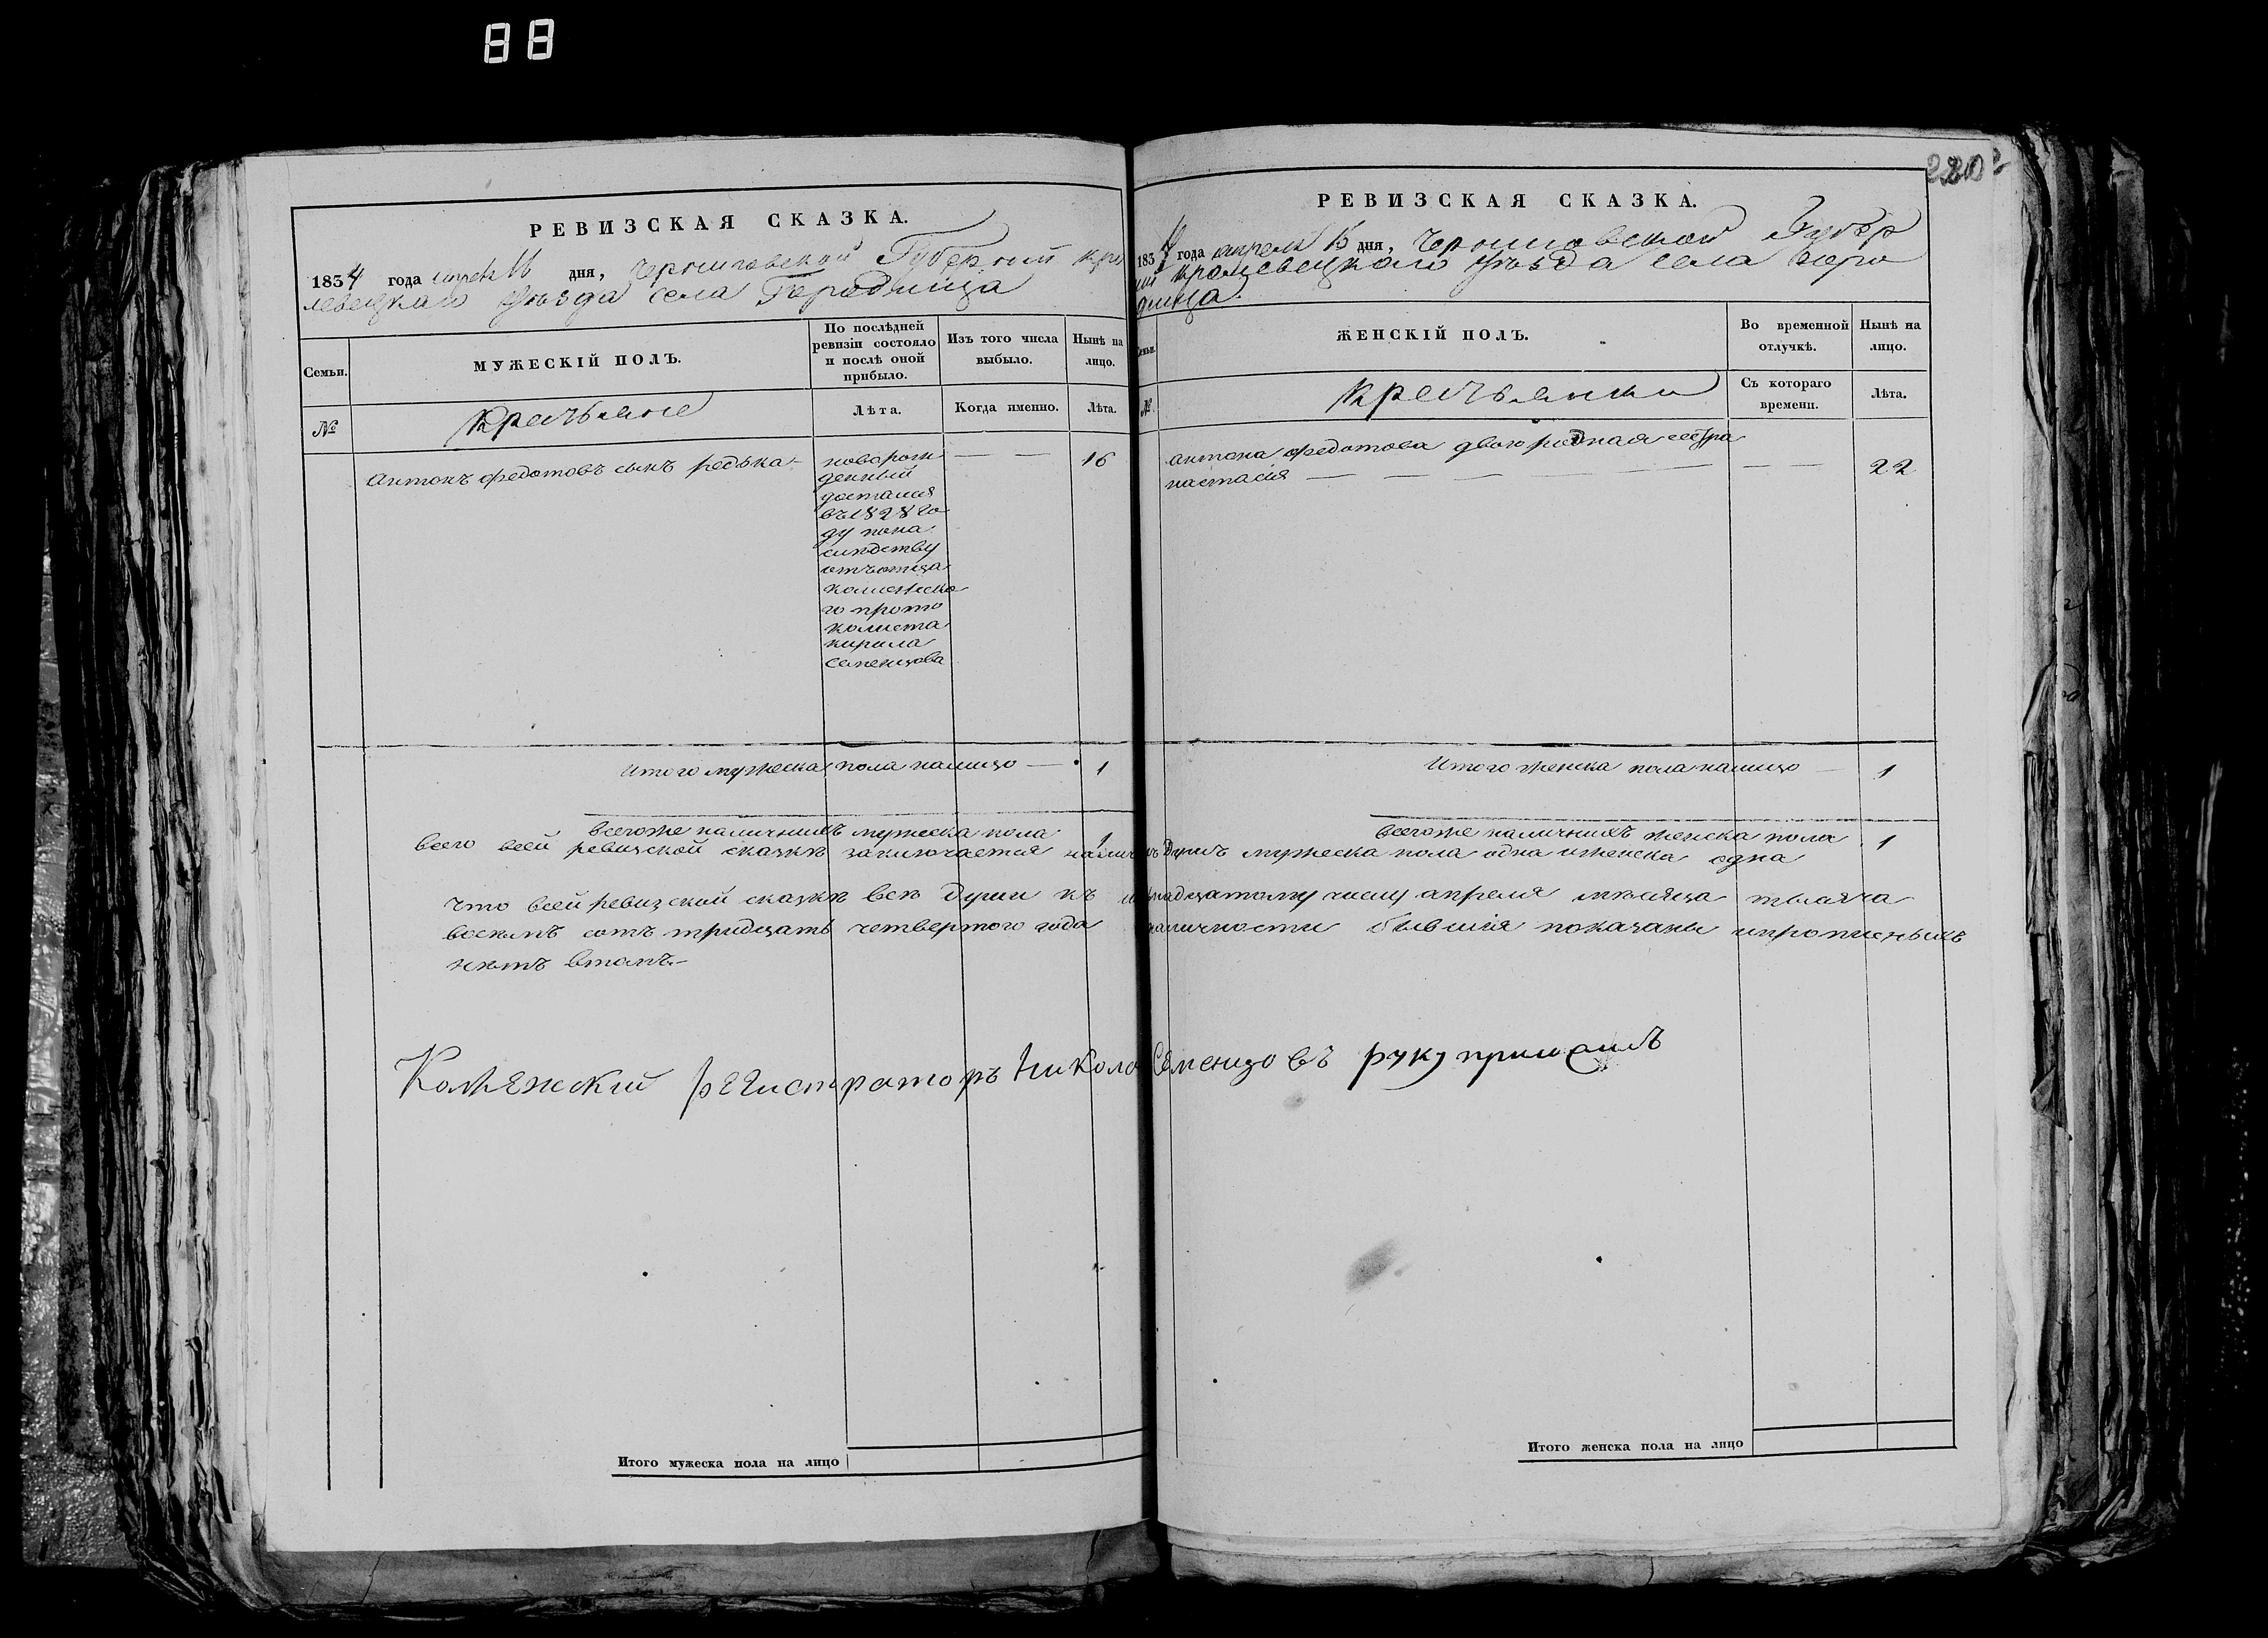 88
РЕВИЗСКАЯ СКАЗКА.
1834 года дня, Черниговской Губернии Кро
левецкаго уъзда села Городища
Семьи.
МУЖЕСКІЙ ПОЛЪ.
По послѣдней ревизіи состояло и послѣ оной прибыло.
Изъ того числа выбыло.
Нынѣ на лицо.
№
Крестьяне
Лѣта.
Когда именно.
Лѣта.
Антонъ федотовъ сынъ редька
новорож
денный
достался
въ 1828 го
ду пона
слѣдству
отъ отца
колежско
го прото
колиста
кирила
Семенцова
16
Итого мужеска пола налицо 1
всегоже наличныхъ мужеска пола 1
РЕВИЗСКАЯ СКАЗКА.
1834 года апреля дня, Черниговской Губер
нии Кролевецкаго уъзда села Горо
дища.
Семьи.
ЖЕНСКІЙ ПОЛЪ.
Во временной отлучкѣ.
Нынѣ на лицо.
№.
Крестьянки
Съ котораго времени.
Лѣта.
Антона федотова двоюродная сестра
настасія
22
Итого женска пола налицо 1
всегоже наличныхъ женска пола 1
всего всей ревизской сказкѣ заключается наличныхъ Душъ мужеска пола одна и женска одна
Что всей ревизской сказкѣ всѣ Души къ числу апреля мѣсяца тысяча
восемъ сотъ тридцать четвертого года наличности бывшія показаны ипрописныхъ
нѣтъ втомъ
Колежский регистраторъ Николай Семенцовъ руку приложилъ
Итого мужеска пола на лицо
Итого женска пола на лицо